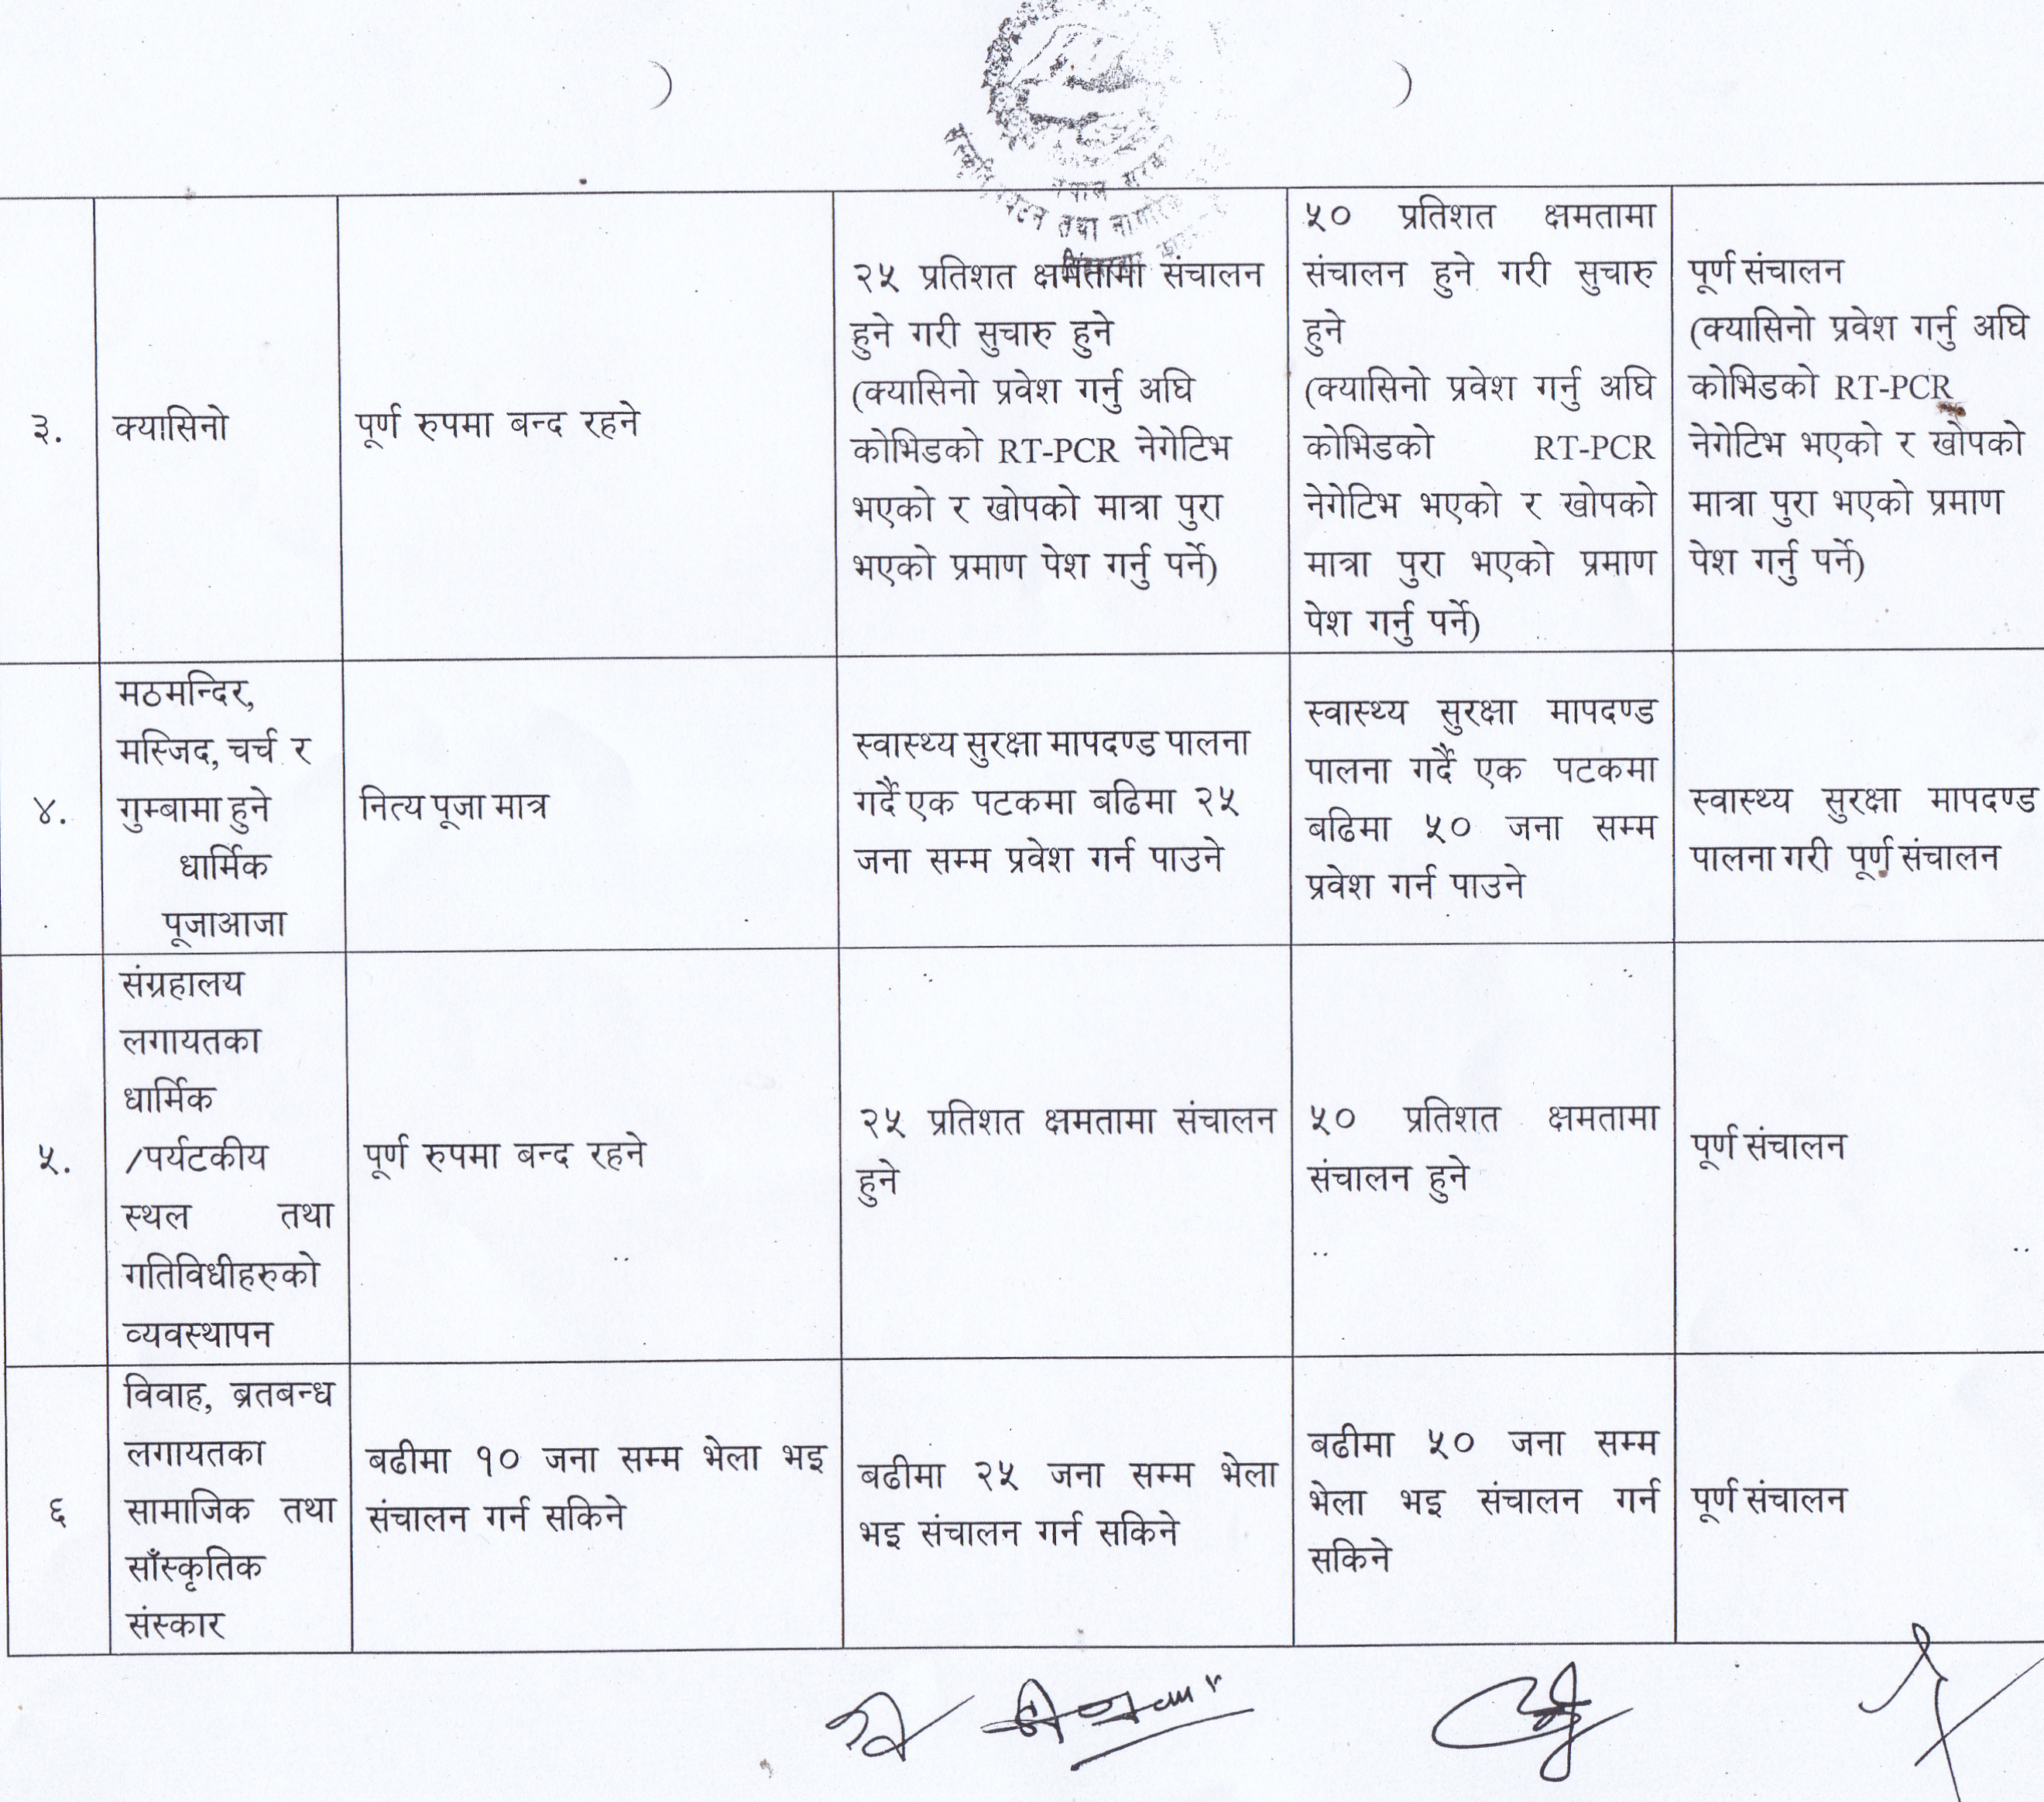 नेपाल
तथा
३.
क्यासिनो
पूर्ण रुपमा बन्द रहने
२५ प्रतिशत क्षमतामा संचालन
हुने गरी सुचारु हुने
(क्यासिनो प्रवेश गर्नु अघि
कोभिडको RT-PCR नेगेटिभ
भएको र खोपको मात्रा पुरा
भएको प्रमाण पेश गर्नु पर्ने)
५० प्रतिशत क्षमतामा
संचालन हुने गरी सुचारु
हुने
(क्यासिनो प्रवेश गर्नु अघि
कोभिडको RT-PCR
नेगेटिभ भएको र खोपको
मात्रा पुरा भएको प्रमाण
पेश गर्नु पर्ने)
पूर्ण संचालन
(क्यासिनो प्रवेश गर्नु अघि
कोभिडको RT-PCR
नेगेटिभ भएको र खोपको
मात्रा पुरा भएको प्रमाण
पेश गर्नु पर्ने)
४.
मठमन्दिर,
मस्जिद, चर्च र
गुम्बामा हुने
धार्मिक
पूजाआजा
नित्य पूजा मात्र
स्वास्थ्य सुरक्षा मापदण्ड पालना
गर्दै एक पटकमा बढिमा २५
जना सम्म प्रवेश गर्न पाउने
स्वास्थ्य सुरक्षा मापदण्ड
पालना गर्दै एक पटकमा
बढिमा ५० जना सम्म
प्रवेश गर्न पाउने
स्वास्थ्य सुरक्षा मापदण्ड
पालना गरी पूर्ण संचालन
५.
संग्रहालय
लगायतका
धार्मिक
/पर्यटकीय
स्थल तथा
गतिविधीहरुको
व्यवस्थापन
पूर्ण रुपमा बन्द रहने
२५ प्रतिशत क्षमतामा संचालन
हुने
५० प्रतिशत क्षमतामा
संचालन हुने
पूर्ण संचालन
६
विवाह, ब्रतबन्ध
लगायतका
सामाजिक तथा
साँस्कृतिक
संस्कार
बढीमा १० जना सम्म भेला भइ
संचालन गर्न सकिने
बढीमा २५ जना सम्म भेला
भइ संचालन गर्न सकिने
बढीमा ५० जना सम्म
भेला भइ संचालन गर्न
सकिने
पूर्ण संचालन